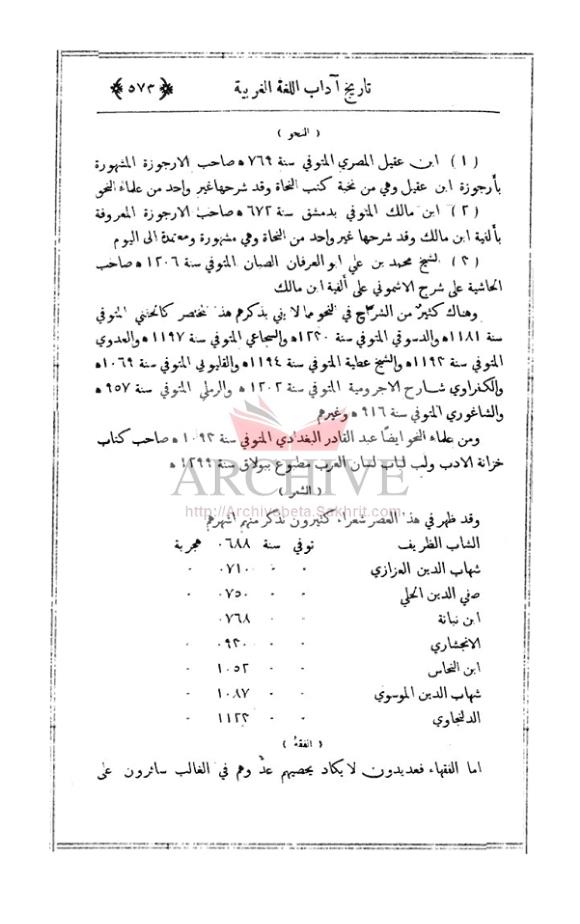 تاريخ آداب اللغة العربية ﴿٥٧٣﴾
( النحو )
( ١ ) ابن عقيل المصري المتوفي سنة ٧٦٩ ه صاحب الارجوزة المشهورة
بأرجوزة ابن عقيل وهي من نخبة كتب النحاة وقد شرحها غير واحد من علماء النحو
( ٢ ) ابن مالك المتوفي بدمشق سنة ٦٧٢ ه صاحب الارجوزة المعروفة
بألفية ابن مالك وقد شرحها غير واحد من النحاة وهي مشهورة ومعتمدة الى اليوم
( ٣ ) الشيخ محمد بن علي ابو العرفان الصبان المتوفي سنة ١٢٠٦ ه صاحب
الحاشية على شرح الاشموني على ألفية ابن مالك
وهناك كثير من الشراح في النحو مما لا يني بذكرهم هذا المختصر كالحنفي المتوفي
سنة ١١٨١ ه والدسوقي المتوفي سنة ١٢٣٠ ه والسجاعي المتوفي سنة ١١٩٧ ه والعدوي
المتوفي سنة ١١٩٣ ه والشيخ عطية المتوفي سنة ١١٩٤ ه والقليوبي المتوفي سنة ١٠٦٩ ه
والكفراوي شارح الاجرومية المتوفي سنة ١٢٠٢ ه والرملي المتوفي سنة ٩٥٧ ه
والشاغوري المتوفي سنة ٩١٦ ه وغيرهم
ومن علماء النحو ايضاً عبد القادر البغدادي المتوفي سنة ١٠٩٣ ه صاحب كتاب
خزانة الادب ولب لباب لسان العرب مطبوع ببولاق سنة ١٢٩٩ ه
ARCHIVE
( الشعر )
http://Archivebeta.Sakhrit.com
وقد ظهر في هذا العصر شعراء كثيرون نذكر منهم اشهرهم
الشاب الظريف توفي سنة ٠٦٨٨ هجرية
شهاب الدين العزازي ٠٧١٠
صفي الدين الحلي ٠٧٥٠
ابن نباتة ٠٧٦٨
الانجشاري ٠٩٣٠
ابن النحاس ١٠٥٢
شهاب الدين الموسوي ١٠٨٧
الدلنجاوي ١١٢٣
( الفقه )
اما الفقهاء فعديدون لا يكاد يحصيهم عدٌّ وهم في الغالب سائرون على